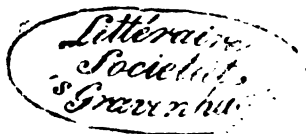 Littéraire
Societeit,
's Gravenha